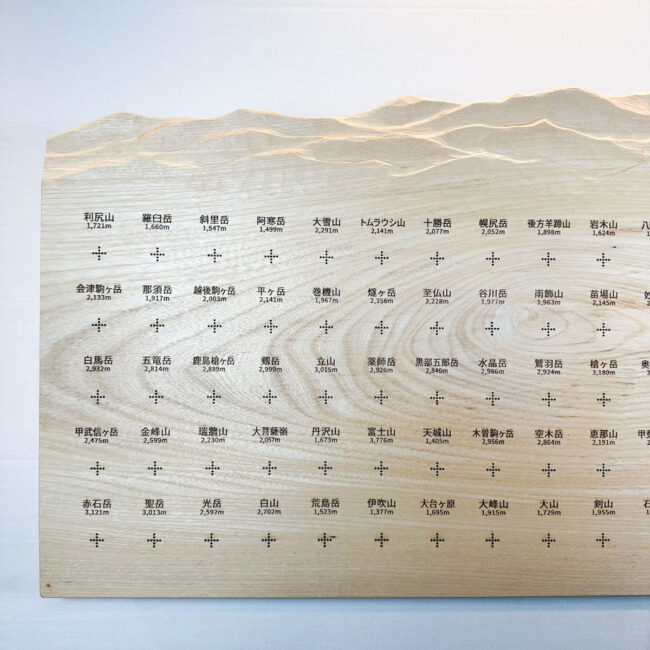 利尻山 羅臼岳 斜里岳 阿寒岳 大雪山 トムラウシ山 十勝岳 幌尻岳 後方羊蹄山 岩木山 八
1,721m 1,660m 1,547m 1,499m 2,291m 2,141m 2,077m 2,052m 1,898m 1,624m
会津駒ヶ岳 那須岳 越後駒ヶ岳 平ヶ岳 巻機山 燧ヶ岳 至仏山 谷川岳 雨飾山 苗場山
2,133m 1,917m 2,003m 2,141m 1,967m 2,356m 2,228m 1,977m 1,963m 2,145m
白馬岳 五竜岳 鹿島槍ヶ岳 剱岳 立山 薬師岳 黒部五郎岳 水晶岳 鷲羽岳 槍ヶ岳 奥
2,932m 2,814m 2,889m 2,999m 3,015m 2,926m 2,840m 2,986m 2,924m 3,180m
甲武信ヶ岳 金峰山 瑞牆山 大菩薩嶺 丹沢山 富士山 天城山 木曽駒ヶ岳 空木岳 恵那山 甲
2,475m 2,599m 2,230m 2,057m 1,673m 3,776m 1,405m 2,956m 2,864m 2,191m
赤石岳 聖岳 光岳 白山 荒島岳 伊吹山 大台ヶ原 大峰山 大山 剣山 石
3,121m 3,013m 2,592m 2,702m 1,523m 1,377m 1,695m 1,915m 1,729m 1,955m